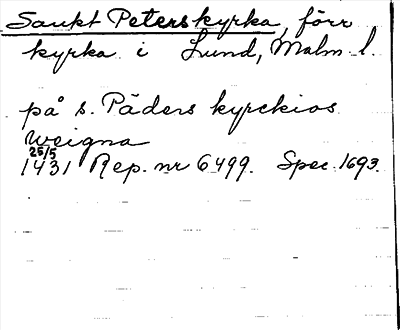 Sankt Peterskyrka, förr
kyrka i Lund, Malm. l.
på s. Päders kyrckios
weigna
25/5
1431 Rep. nr 6499. Spec. 1693.